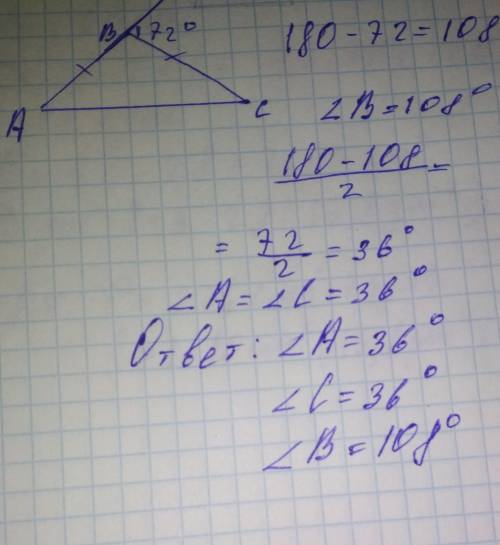 B 72°
A
C
180-72=108
∠B=108°
180-108
2
=
= 72/2 = 36°
∠A=∠C=36°
Ответ: ∠A=36°
∠C=36°
∠B=108°